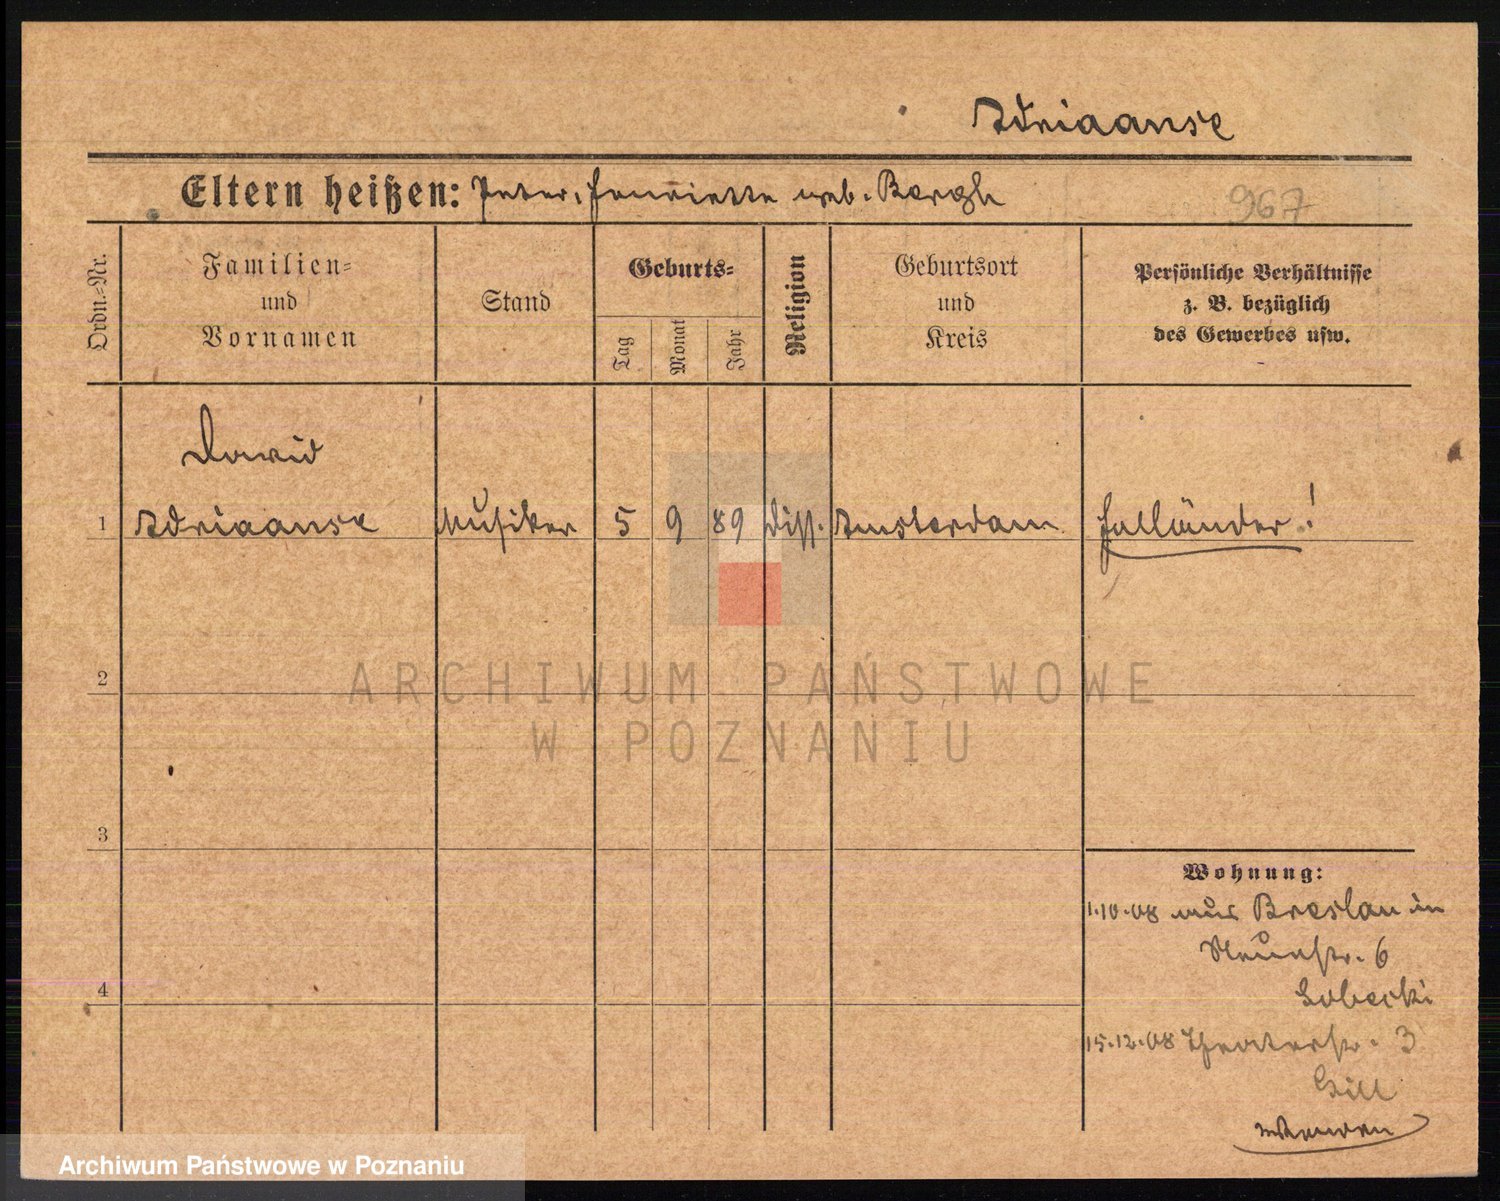 Adriaanse
Eltern heißen: Peter, Henriette geb. Bergh
967
Ordn.-Nr.
Familien-
und
Vornamen
Stand
Geburts-
Tag
Monat
Jahr
Religion
Geburtsort
und
Kreis
Persönliche Verhältnisse
z. B. bezüglich
des Gewerbes usw.
David
1 Adriaanse Musiker 5 9 89 Diss. Amsterdam Holländer!
2
ARCHIWUM PAŃSTWOWE
W POZNANIU
3
Wohnung:
1.10.08 aus Breslau in
6
4
15.12.08 Theaterstr. 3
Archiwum Państwowe w Poznaniu